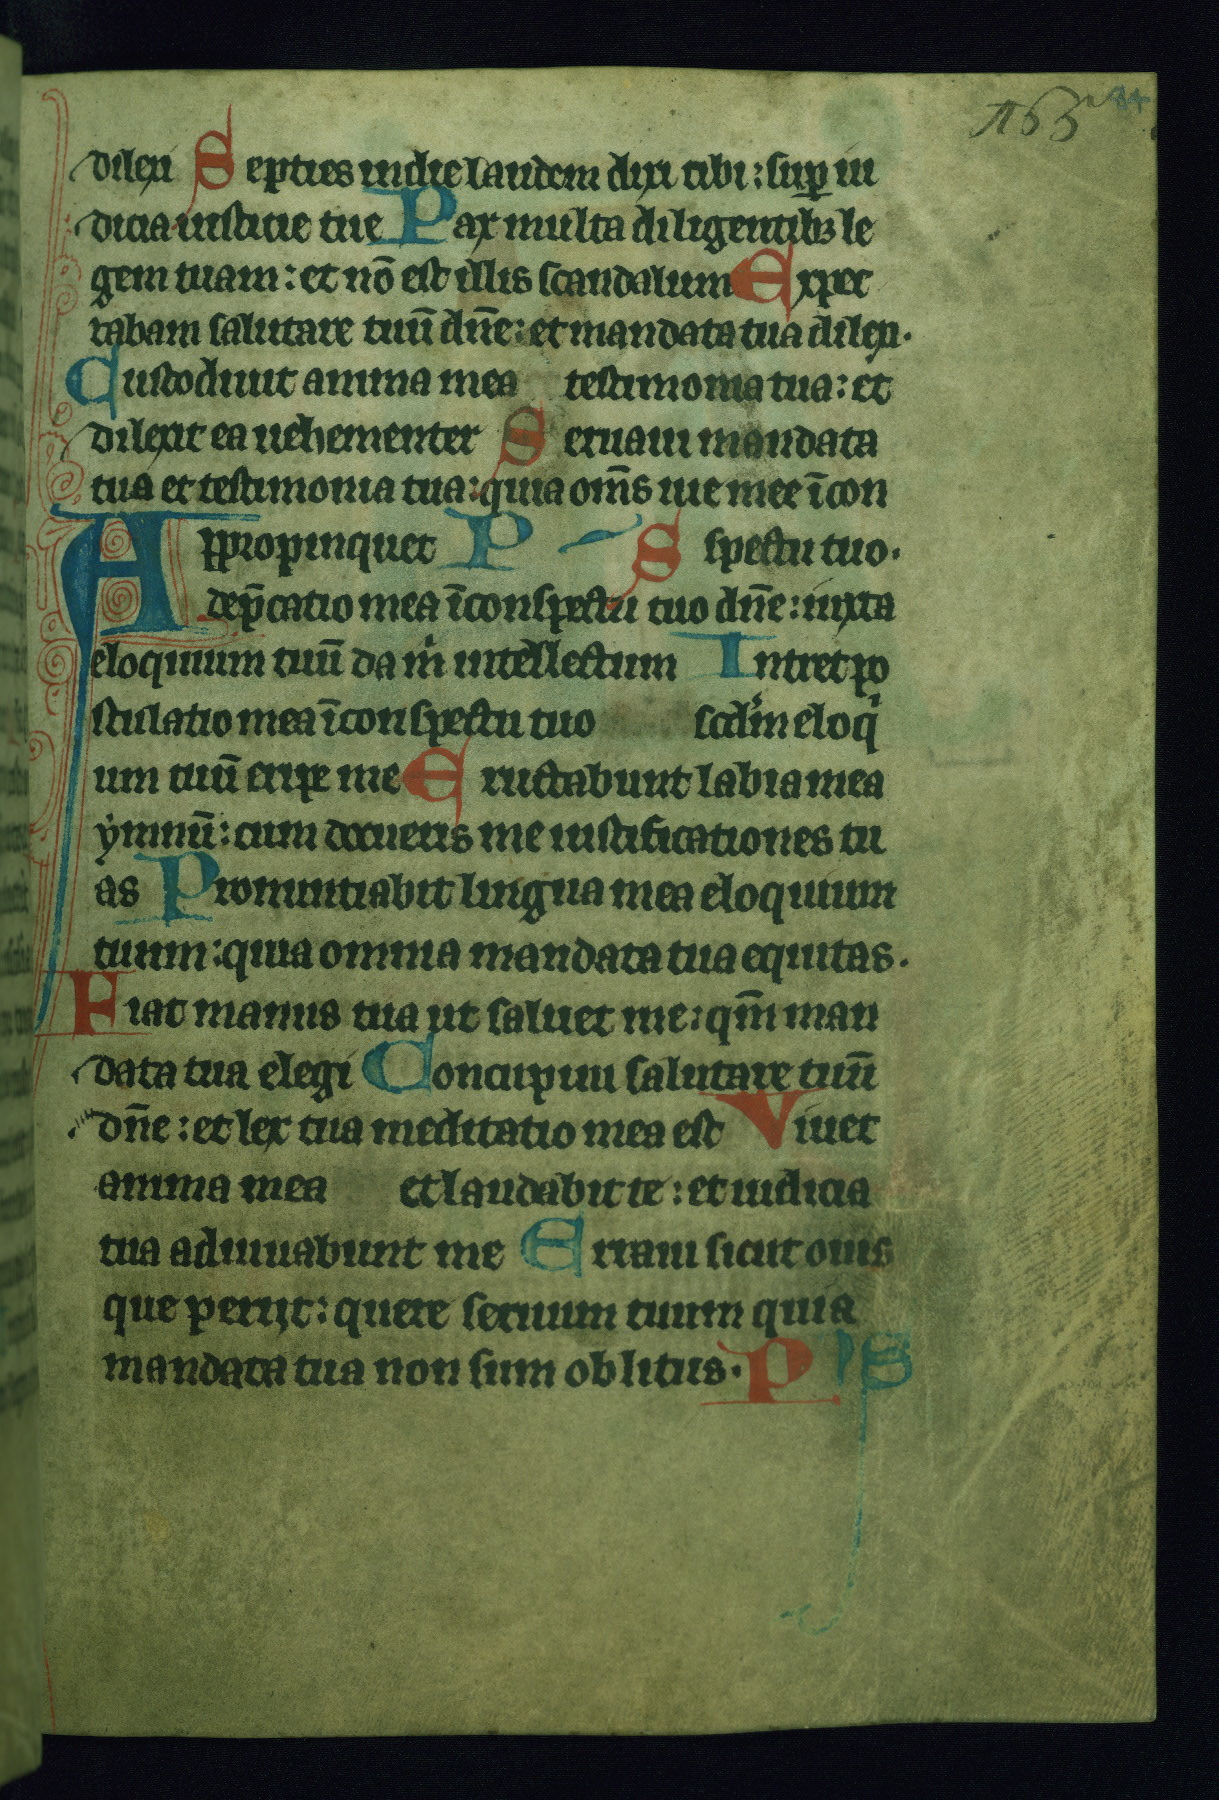 dilexi Septies in die laudem dixi tibi : sup̲ iu
dicia iusticie tue Pax multa diligentibꝫ le
gem tuam : et nō est illis scandalum Expec
tabam salutare tuū dn̄e : et mandata tua dilexi .
Custodiuit anima mea testimonia tua : et
dilexit ea uehementer Seruaui mandata
tua et testimonia tua : quia om̄s uie mee ī con
Appropinquet P S spectu tuo .
dep̄catio mea ī conspectu tuo dn̄e : iuxta
eloquium tuū da m̍ intellectum Intret po
stulatio mea ī conspectu tuo scd̍m eloq̍
um tuū eripe me Eructabunt labia mea
ẏmnū : cum docueris me iustificationes tu
as Pronuntiabit lingua mea eloquium
tuum : quia omnia mandata tua equitas .
Fiat manus tua ut saluet me : qm̄ man
data tua elegi Concupiui salutare tuū
dn̄e : et lex tua meditatio mea est Viuet
anima mea et laudabit te : et iudicia
tua adiuuabunt me Erraui sicut ouis
que periit : quere seruum tuum quia
mandata tua non sum oblitus . P S